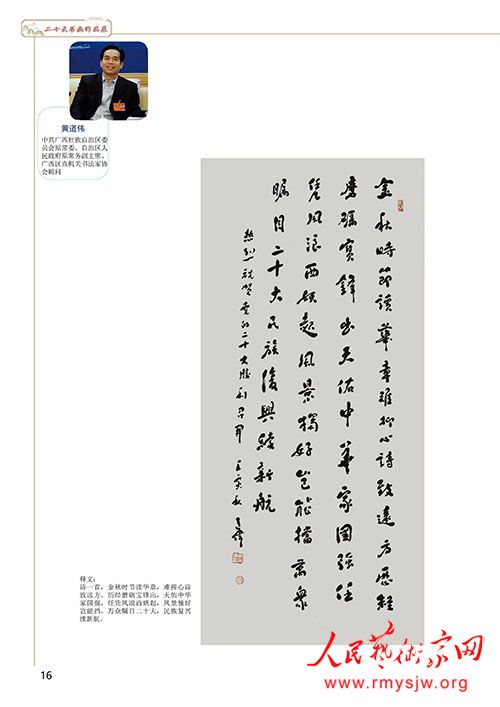 二十大书画作品展
黄道伟
中共广西壮族自治区委
员会原常委、自治区人
民政府原常务副主席、
广西区直机关书法家协
会顾问
金秋時節讀華章難抑心詩致遠方歷經
磨礪寶鋒出天佑中華家国强任
凭風浪西妖起風景獨好豈能擋萬衆
瞩目二十大民族復興續新航
热烈祝贺党的二十大胜利召开 壬寅秋 道伟
释文：
诗一首，金秋时节读华章，难抑心诗
致远方。历经磨砺宝锋出，天佑中华
家国强。任凭风浪西妖起，风景独好
岂能挡。万众瞩目二十大，民族复兴
续新航。
16
人民藝術家网
www.rmysjw.org